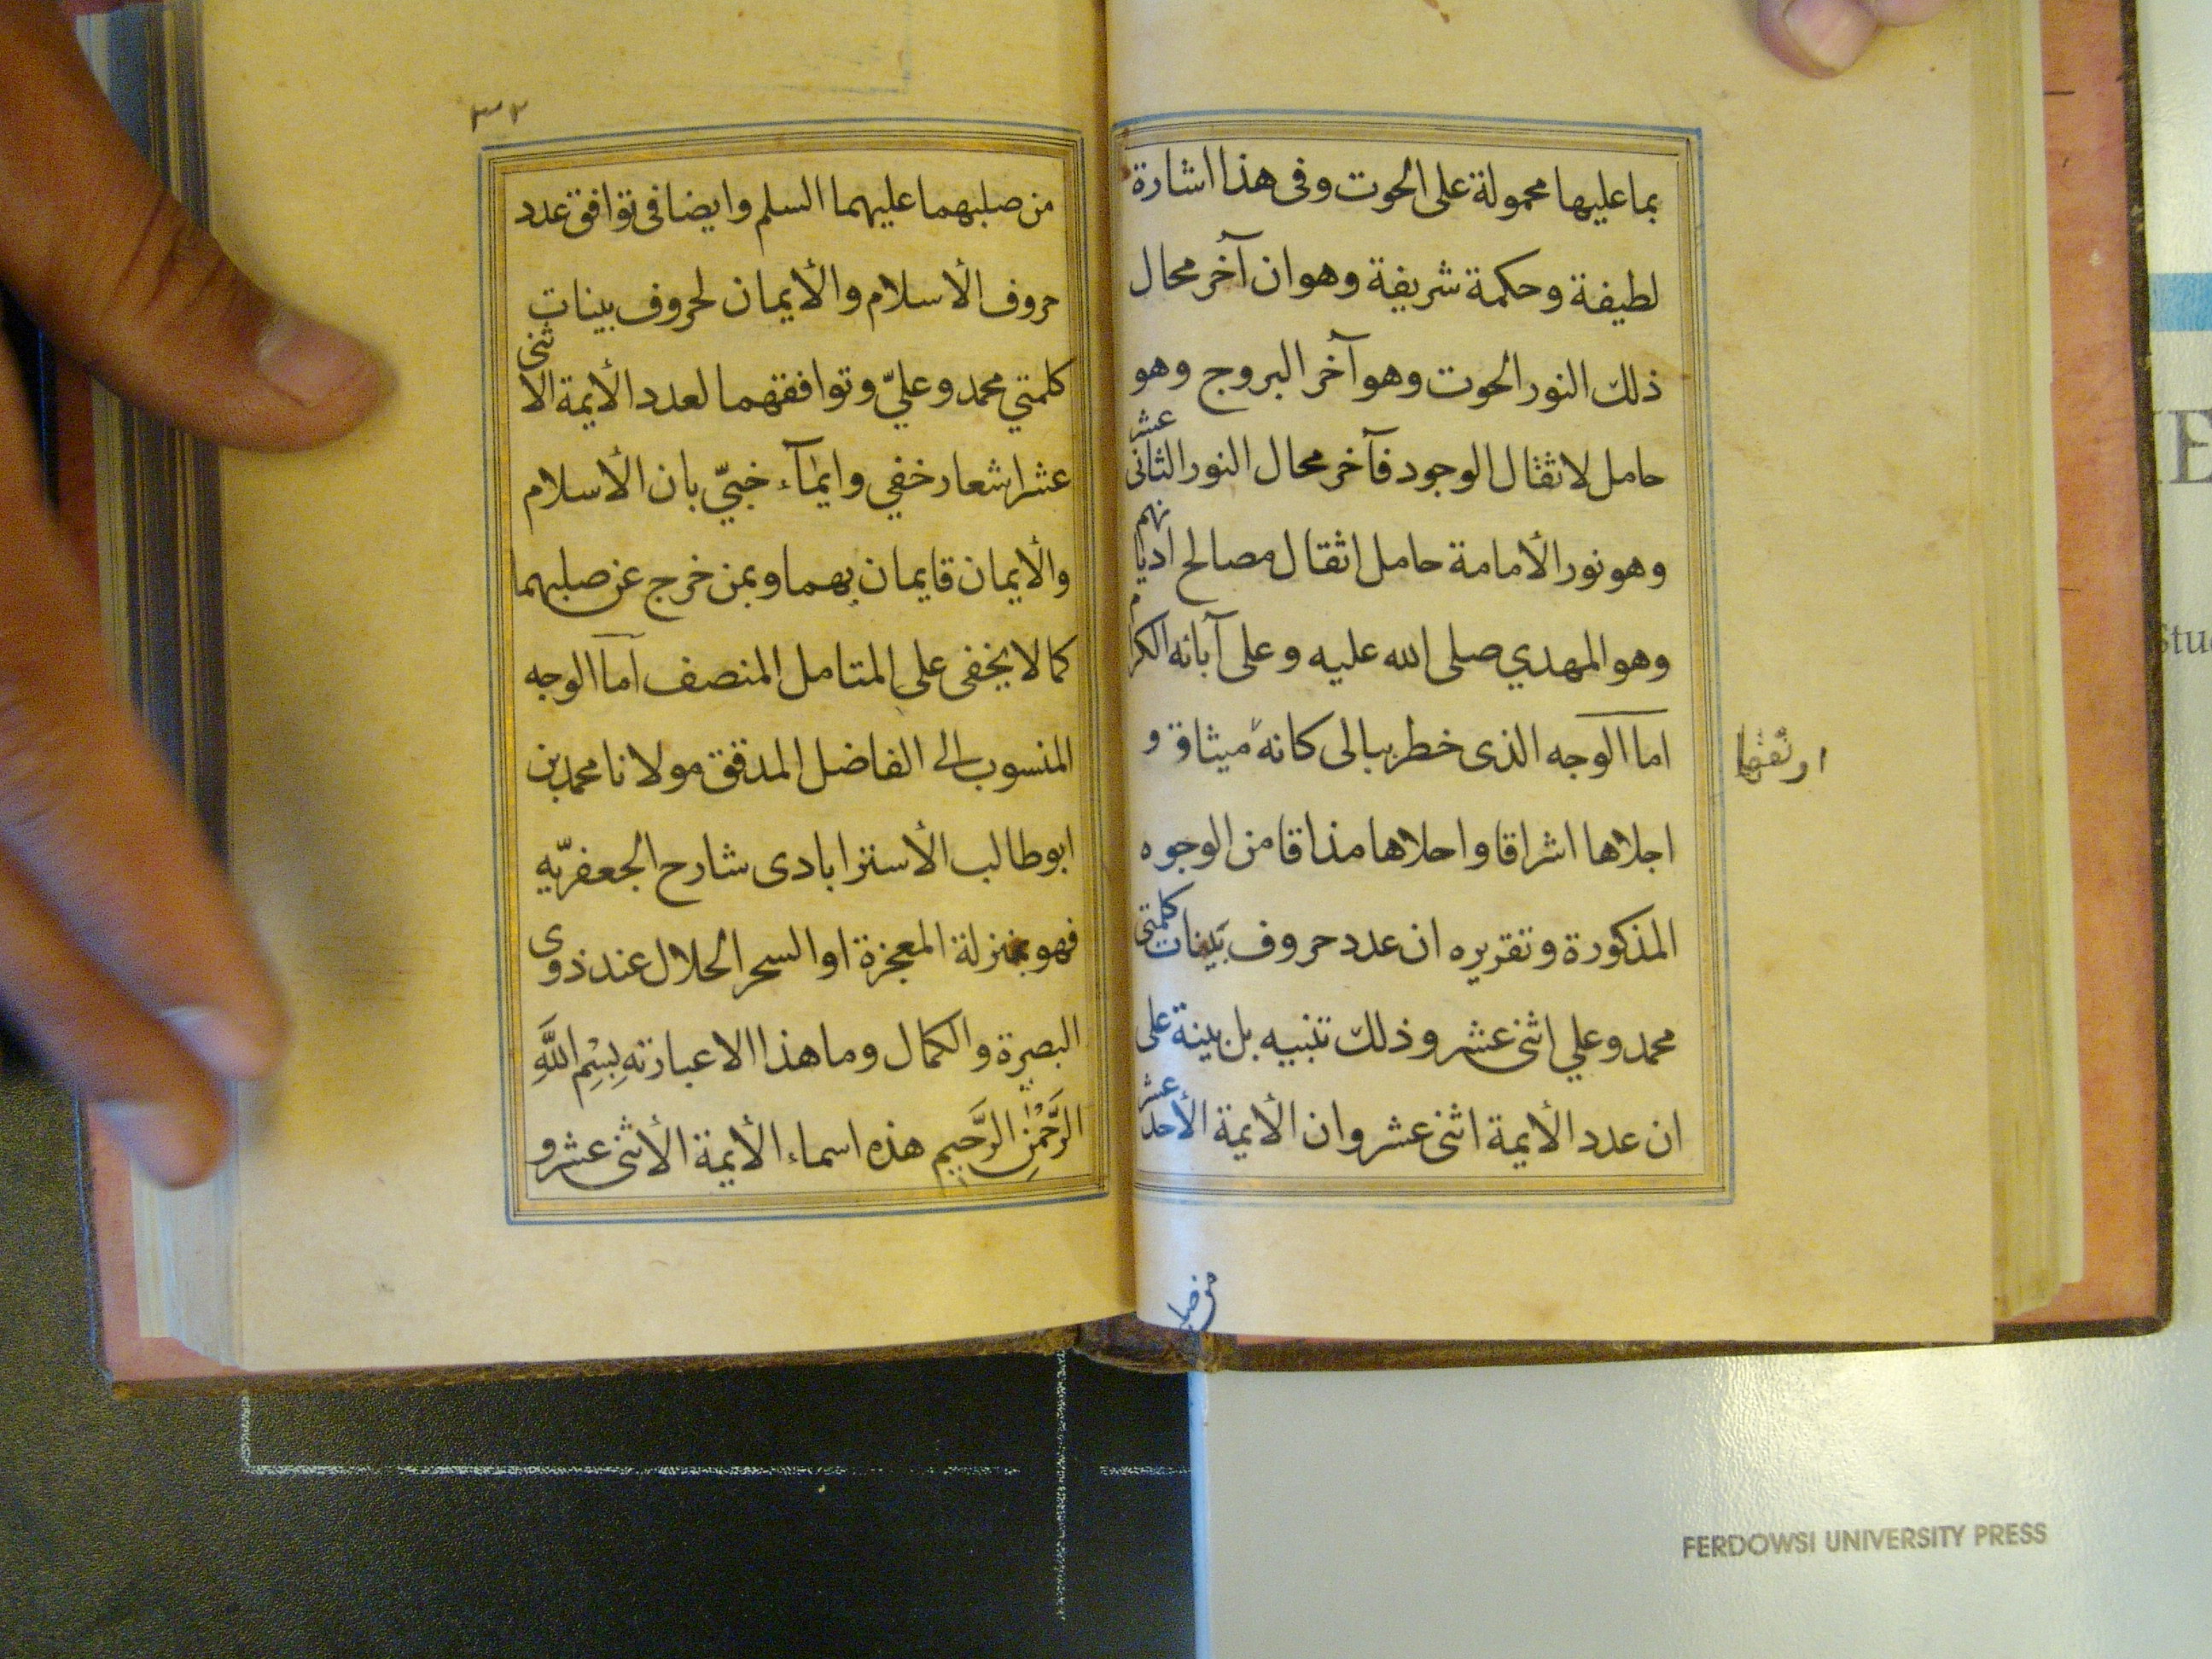 بما عليها محمولة على الحوت وفى هذا اشارة
لطيفة وحكمة شريفة وهو ان آخر محال
ذلك النور الحوت وهو آخر البروج وهو
حامل لاثقال الوجود فآخر محال النور الثانى عشر
وهو نور الأمامة حامل اثقال مصالح اديانهم
وهو المهدي صلى الله عليه وعلى آبائه الكرام
اما الوجه الذى خطر ببالى كانه ميثاق و
اجلاها اشراقا واحلاها مذاقا من الوجوه
المذكورة وتقريره ان عدد حروف بينات كلمتى
محمد وعلي اثنى عشر وذلك تنبيه بل بينة على
ان عدد الأيمة اثنى عشر وان الأيمة الأحد عشر
من صلبهما عليهما السلم وايضا فى توافق عدد
حروف الأسلام والأيمان لحروف بينات
كلمتي محمد وعليّ وتوافقهما لعدد الأيمة الاثنى
عشر اشعار خفي وايمآء خبيّ بان الأسلام
والأيمان قايمان بهما وبمن خرج عن صلبهما
كما لا يخفى على المتامل المنصف اما الوجه
المنسوب الى الفاضل المدقق مولانا محمد بن
ابو طالب الأسترابادى شارح الجعفريّه
فهو بمنزلة المعجزة او السحر الحلال عند ذوى
البصيرة والكمال وما هذا الا عبارته بِسْمِ اللَّهِ
الرَّحْمٰنِ الرَّحيمِ هذه اسماء الأيمة الأثنى عشر و
FERDOWSI UNIVERSITY PRESS